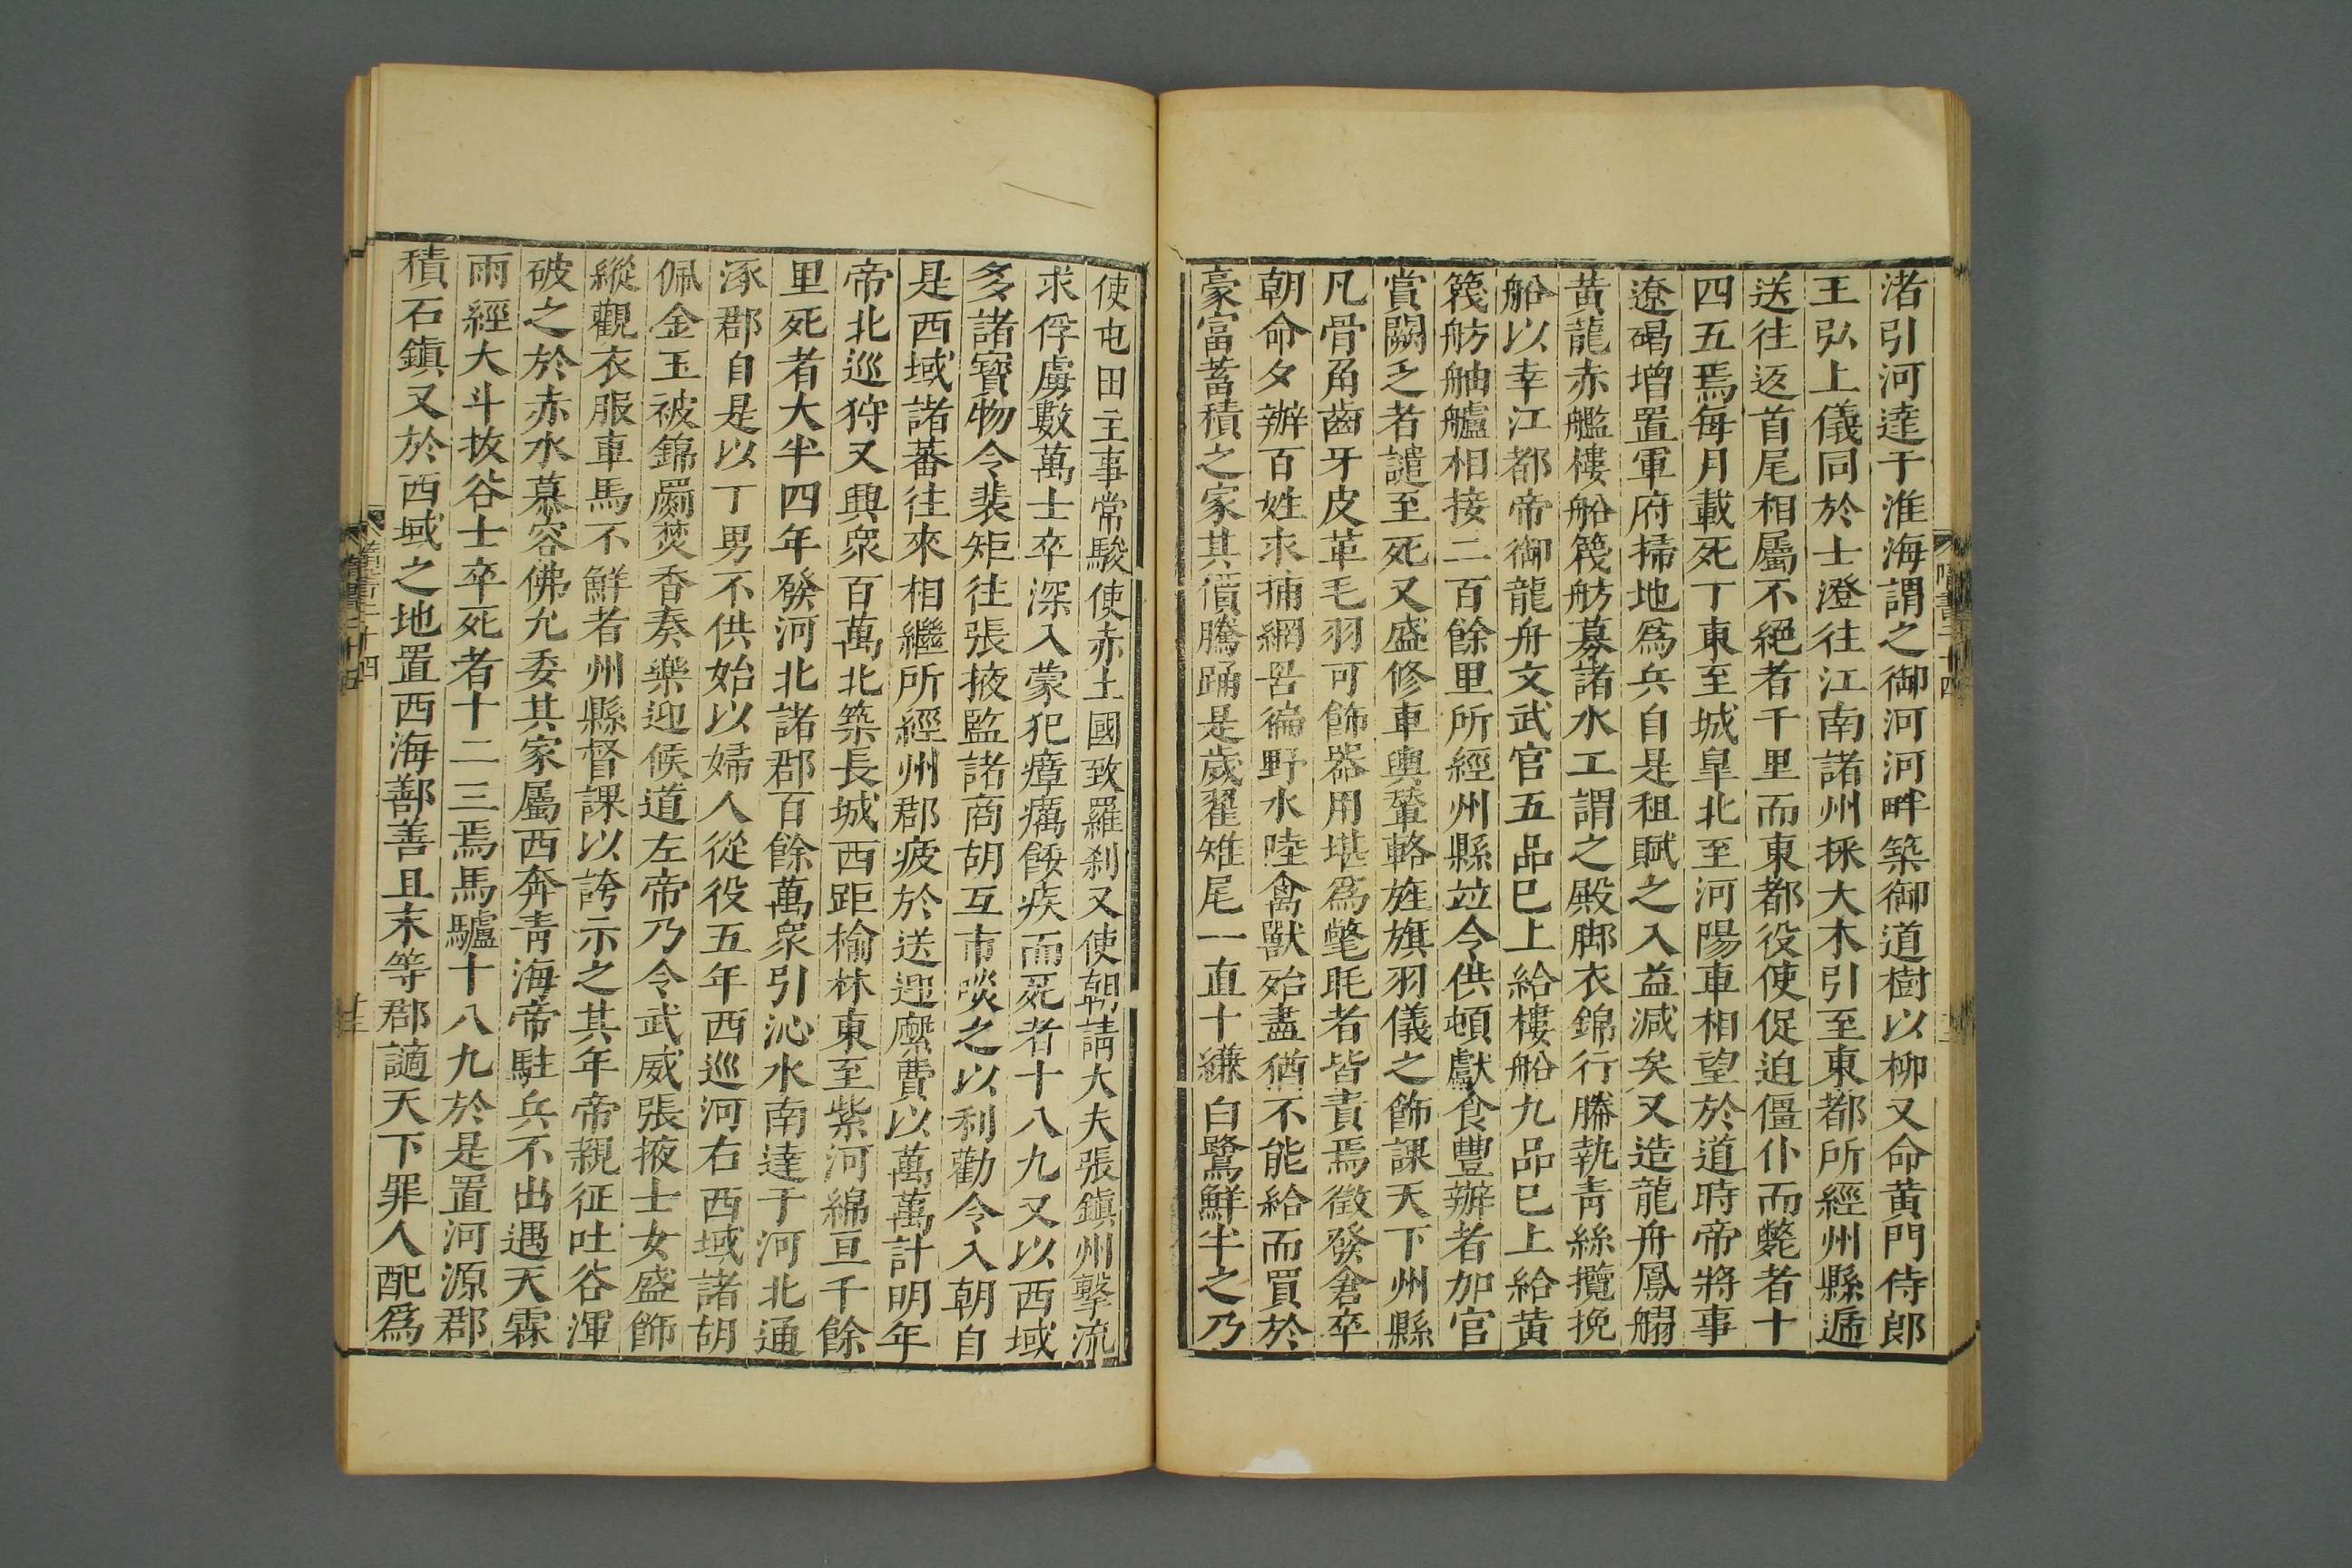 渚引河達于淮海謂之御河河畔築御道樹以柳又命黃門侍郎
王弘上儀同於士澄往江南諸州採大木引至東都所經州縣遞
送往返首尾相屬不絕者千里而東都役使促迫僵仆而斃者十
四五焉每月載死丁東至城皐北至河陽車相望於道時帝將事
遼碣增置軍府掃地爲兵自是租賦之入益減矣又造龍舟鳳䑽
黃龍赤艦樓船篾舫募諸水工謂之殿脚衣錦行縢執靑絲攬挽
船以幸江都帝御龍舟文武官五品已上給樓船九品已上給黃
篾舫舳艫相接二百餘里所經州縣竝令供頓獻食豐辦者加官
賞闕乏者譴至死又盛修車輿輦輅旌旗羽儀之飾課天下州縣
凡骨角齒牙皮革毛羽可飾器用堪爲氅毦者皆責焉徵發倉卒
朝命夕辦百姓求捕網罟徧野水陸禽獸殆盡猶不能給而買於
豪富蓄積之家其價騰踊是歲翟雉尾一直十縑白鷺鮮半之乃
使屯田主事常駿使赤土國致羅刹又使朝請大夫張鎭州擊流
求俘虜數萬士卒深入蒙犯瘴癘餒疾而死者十八九又以西域
多諸寶物令裴矩往張掖監諸商胡互市啖之以利勸令入朝自
是西域諸蕃往來相繼所經州郡疲於送迎糜費以萬萬計明年
帝北巡狩又興衆百萬北築長城西距榆林東至紫河綿亘千餘
里死者大半四年發河北諸郡百餘萬衆引沁水南達于河北通
涿郡自是以丁男不供始以婦人從役五年西巡河右西域諸胡
佩金玉被錦罽焚香奏樂迎候道左帝乃令武威張掖士女盛飾
縱觀衣服車馬不鮮者州縣督課以誇示之其年帝親征吐谷渾
破之於赤水慕容佛允委其家屬西奔靑海帝駐兵不出遇天霖
雨經大斗拔谷士卒死者十二三焉馬驢十八九於是置河源郡
積石鎭又於西域之地置西海鄯善且末等郡謫天下罪人配爲